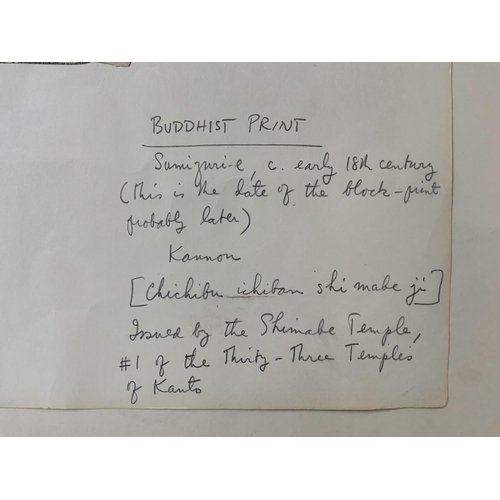 BUDDHIST PRINT
Sumizuri-e, c. early 18th century
(this is the date of the block-print
probably later)
Kannon
[Chichibu ichiban shi mabe ji]
Issued by the Shimabe Temple,
#1 of the Thirty-Three Temples
of Kanto